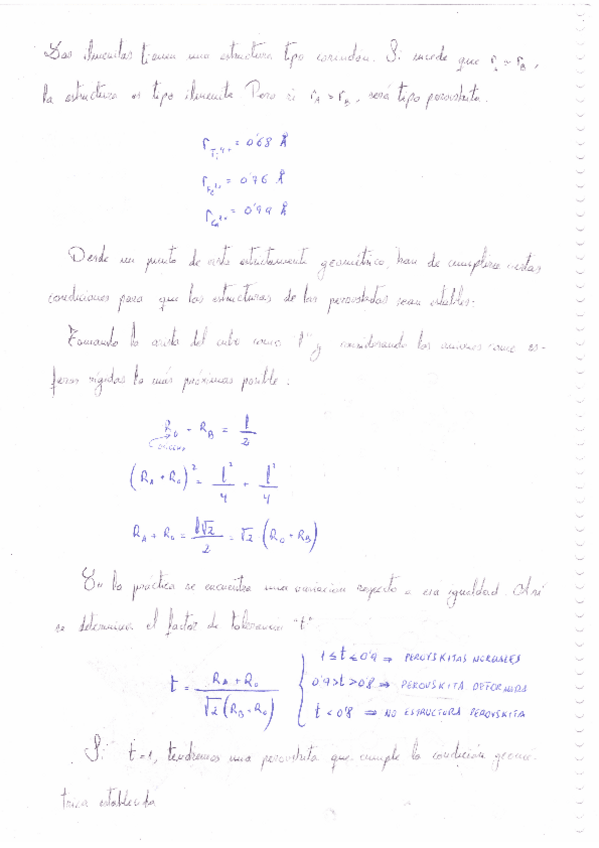 Las ilmenitas tienen una estructura tipo corindón. Si sucede que r_A ≈ r_B,
la estructura es tipo ilmenita. Pero si r_A > r_B, será tipo perovskita.
r_Ti⁴⁺ = 0'68 Å
r_Fe²⁺ = 0'76 Å
r_Ca²⁺ = 0'99 Å
Desde un punto de vista estrictamente geométrico, han de cumplirse ciertas
condiciones para que las estructuras de las perovskitas sean estables.
Tomando la arista del cubo como "l" y considerando los aniones como es-
feras rígidas lo más próximas posible:
R_O + R_B = l/2
(R_A + R_O)² = l²/4 + l²/4
R_A + R_O = l√2/2 = √2 (R_O + R_B)
En la práctica se encuentra una variación respecto a esa igualdad. Así
se determina el factor de tolerancia "t"
t = R_A + R_O / √2 (R_B + R_O)
1 ≤ t ≤ 0'9 ⇒ PEROVSKITAS NORMALES
0'9 > t > 0'8 ⇒ PEROVSKITA DEFORMADA
t < 0'8 ⇒ NO ESTRUCTURA PEROVSKITA
Si t=1, tendremos una perovskita que cumple la condición geomé-
trica establecida